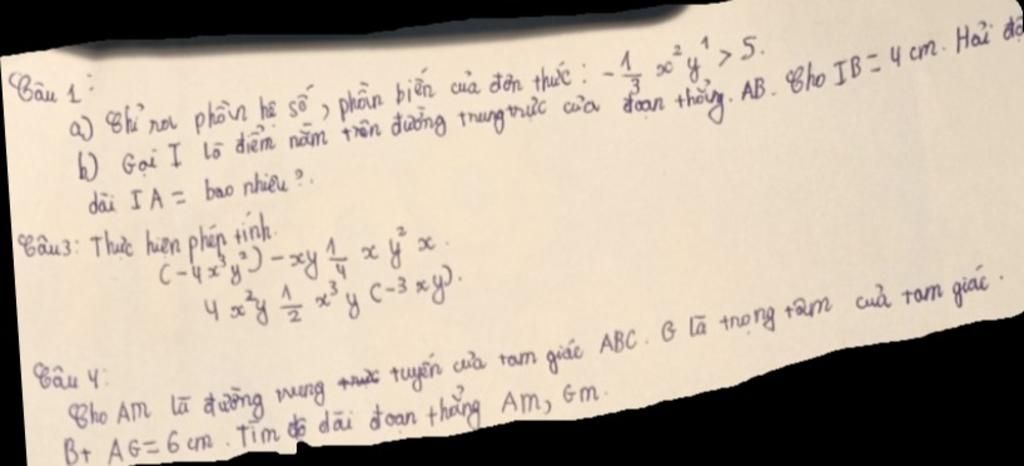 Câu 1:
a) Chỉ ra phần hệ số, phần biến của đơn thức: -1/3 x² y¹ > 5.
b) Gọi I là điểm nằm trên đường trung trực của đoạn thẳng. AB. Cho IB = 4 cm. Hỏi độ
dài IA = bao nhiêu?.
Câu 3: Thực hiện phép tính.
(-4x³y²) - xy 1/4 x y² x.
4 x²y 1/2 x³ y (-3 xy).
Câu 4:
Cho AM là đường trung tuyến của tam giác ABC. G là trọng tâm của tam giác.
Bt AG = 6 cm. Tìm độ dài đoạn thẳng AM, GM.